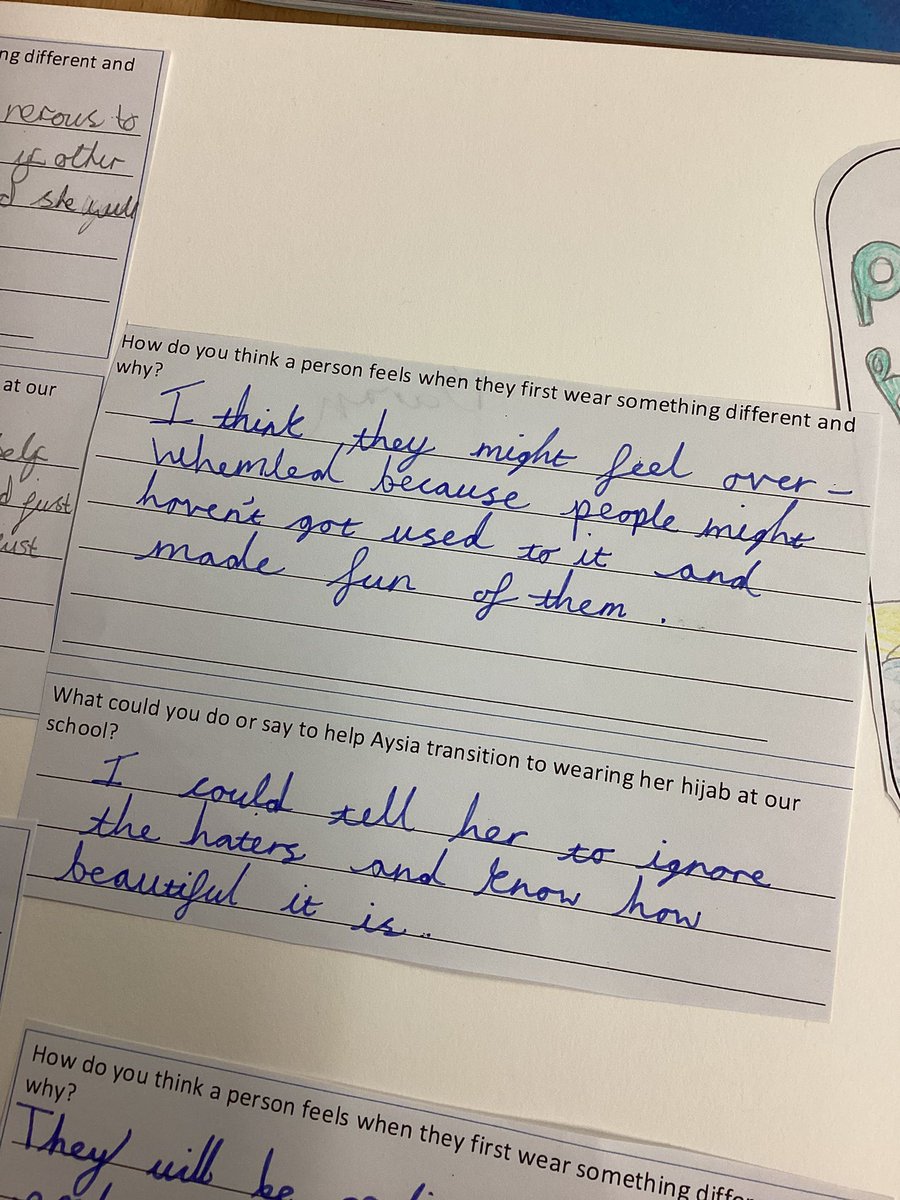 ng different and
nerous to
if other
d she will
at our
self
d just
just
How do you think a person feels when they first wear something different and
why?
I think they might feel over-
whemled because people might
haven't got used to it and
made fun of them.
What could you do or say to help Aysia transition to wearing her hijab at our
school?
I could tell her to ignore
the haters and know how
beautiful it is.
How do you think a person feels when they first wear something differe
why?
They will be